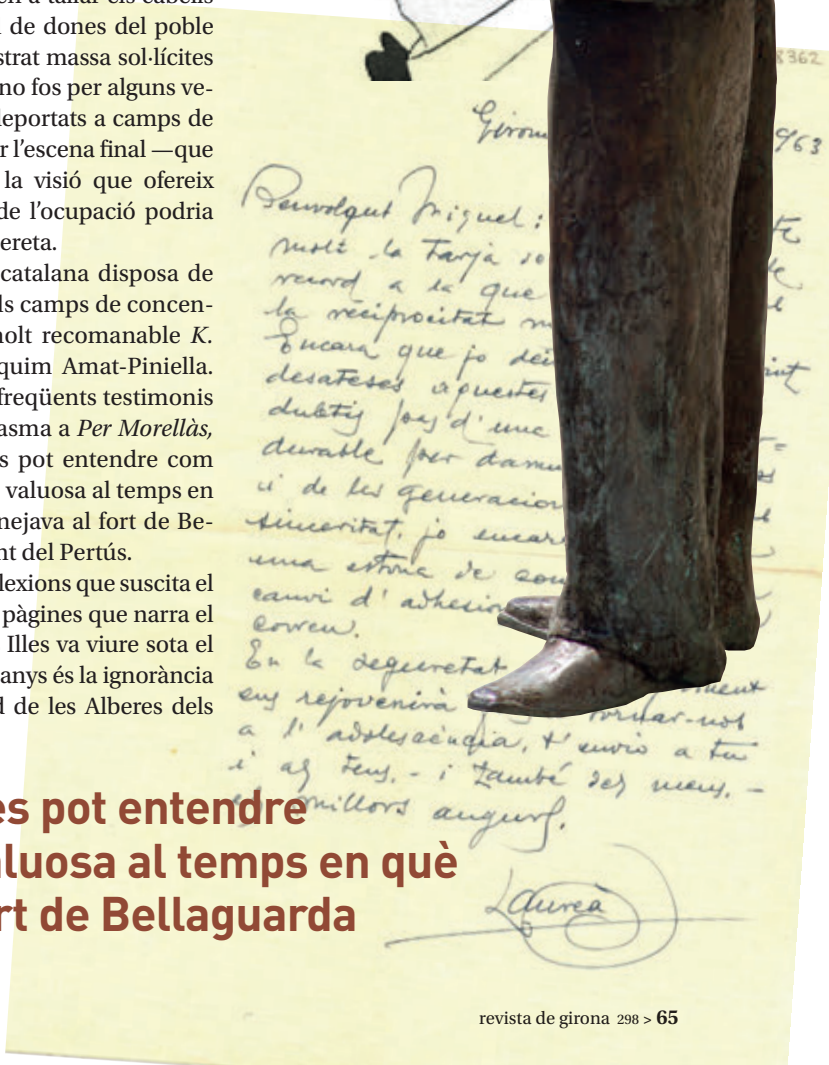 en a tallar els cabells
de dones del poble
strat massa sol·lícites
no fos per alguns ve-
deportats a camps de
r l'escena final —que
la visió que ofereix
de l'ocupació podria
ereta.
catalana disposa de
ls camps de concen-
nolt recomanable K.
quim Amat-Piniella.
freqüents testimonis
asma a Per Morellàs,
s pot entendre com
valuosa al temps en
nejava al fort de Be-
nt del Pertús.
lexions que suscita el
pàgines que narra el
Illes va viure sota el
anys és la ignorància
d de les Alberes dels
es pot entendre
aluosa al temps en què
rt de Bellaguarda
8362
Giron 963
Benvolgut Miquel:
molt la tarja
record a la que
la reciprocitat
Encara que jo
desateses aquestes
dubtis pas d'une
durable per damu
i de les generacion
sinceritat, jo encar
una estona de
canvi d'adhesion
correu.
En la seguretat
ens rejovenirà tornar-nos
a l'adolescència, t'envio a tu
i als teus, - i també dels meus, -
els millors auguris.
Laureà
revista de girona 298 > 65